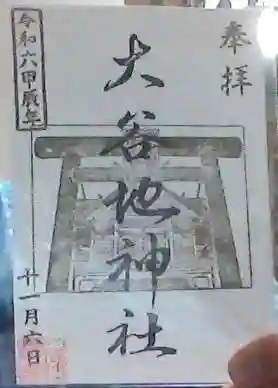 奉拝
大谷地神社
令和六甲辰年
十一月六日